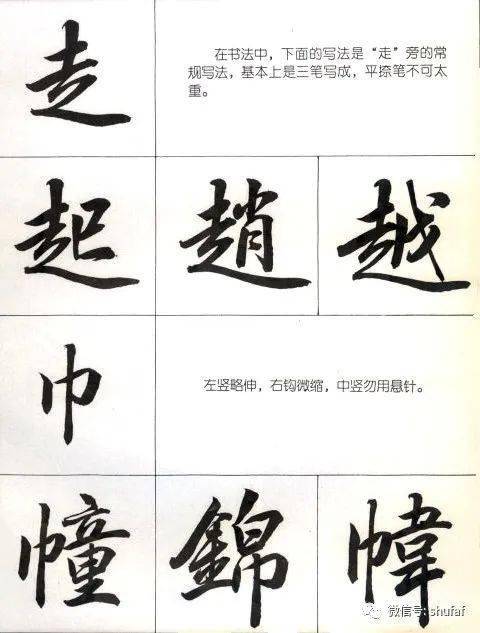 走
在书法中，下面的写法是“走”旁的常
规写法，基本上是三笔写成，平捺笔不可太
重。
起 趙 越
巾
左竖略伸，右钩微缩，中竖勿用悬针。
幢 錦 幃
微信号: shufaf